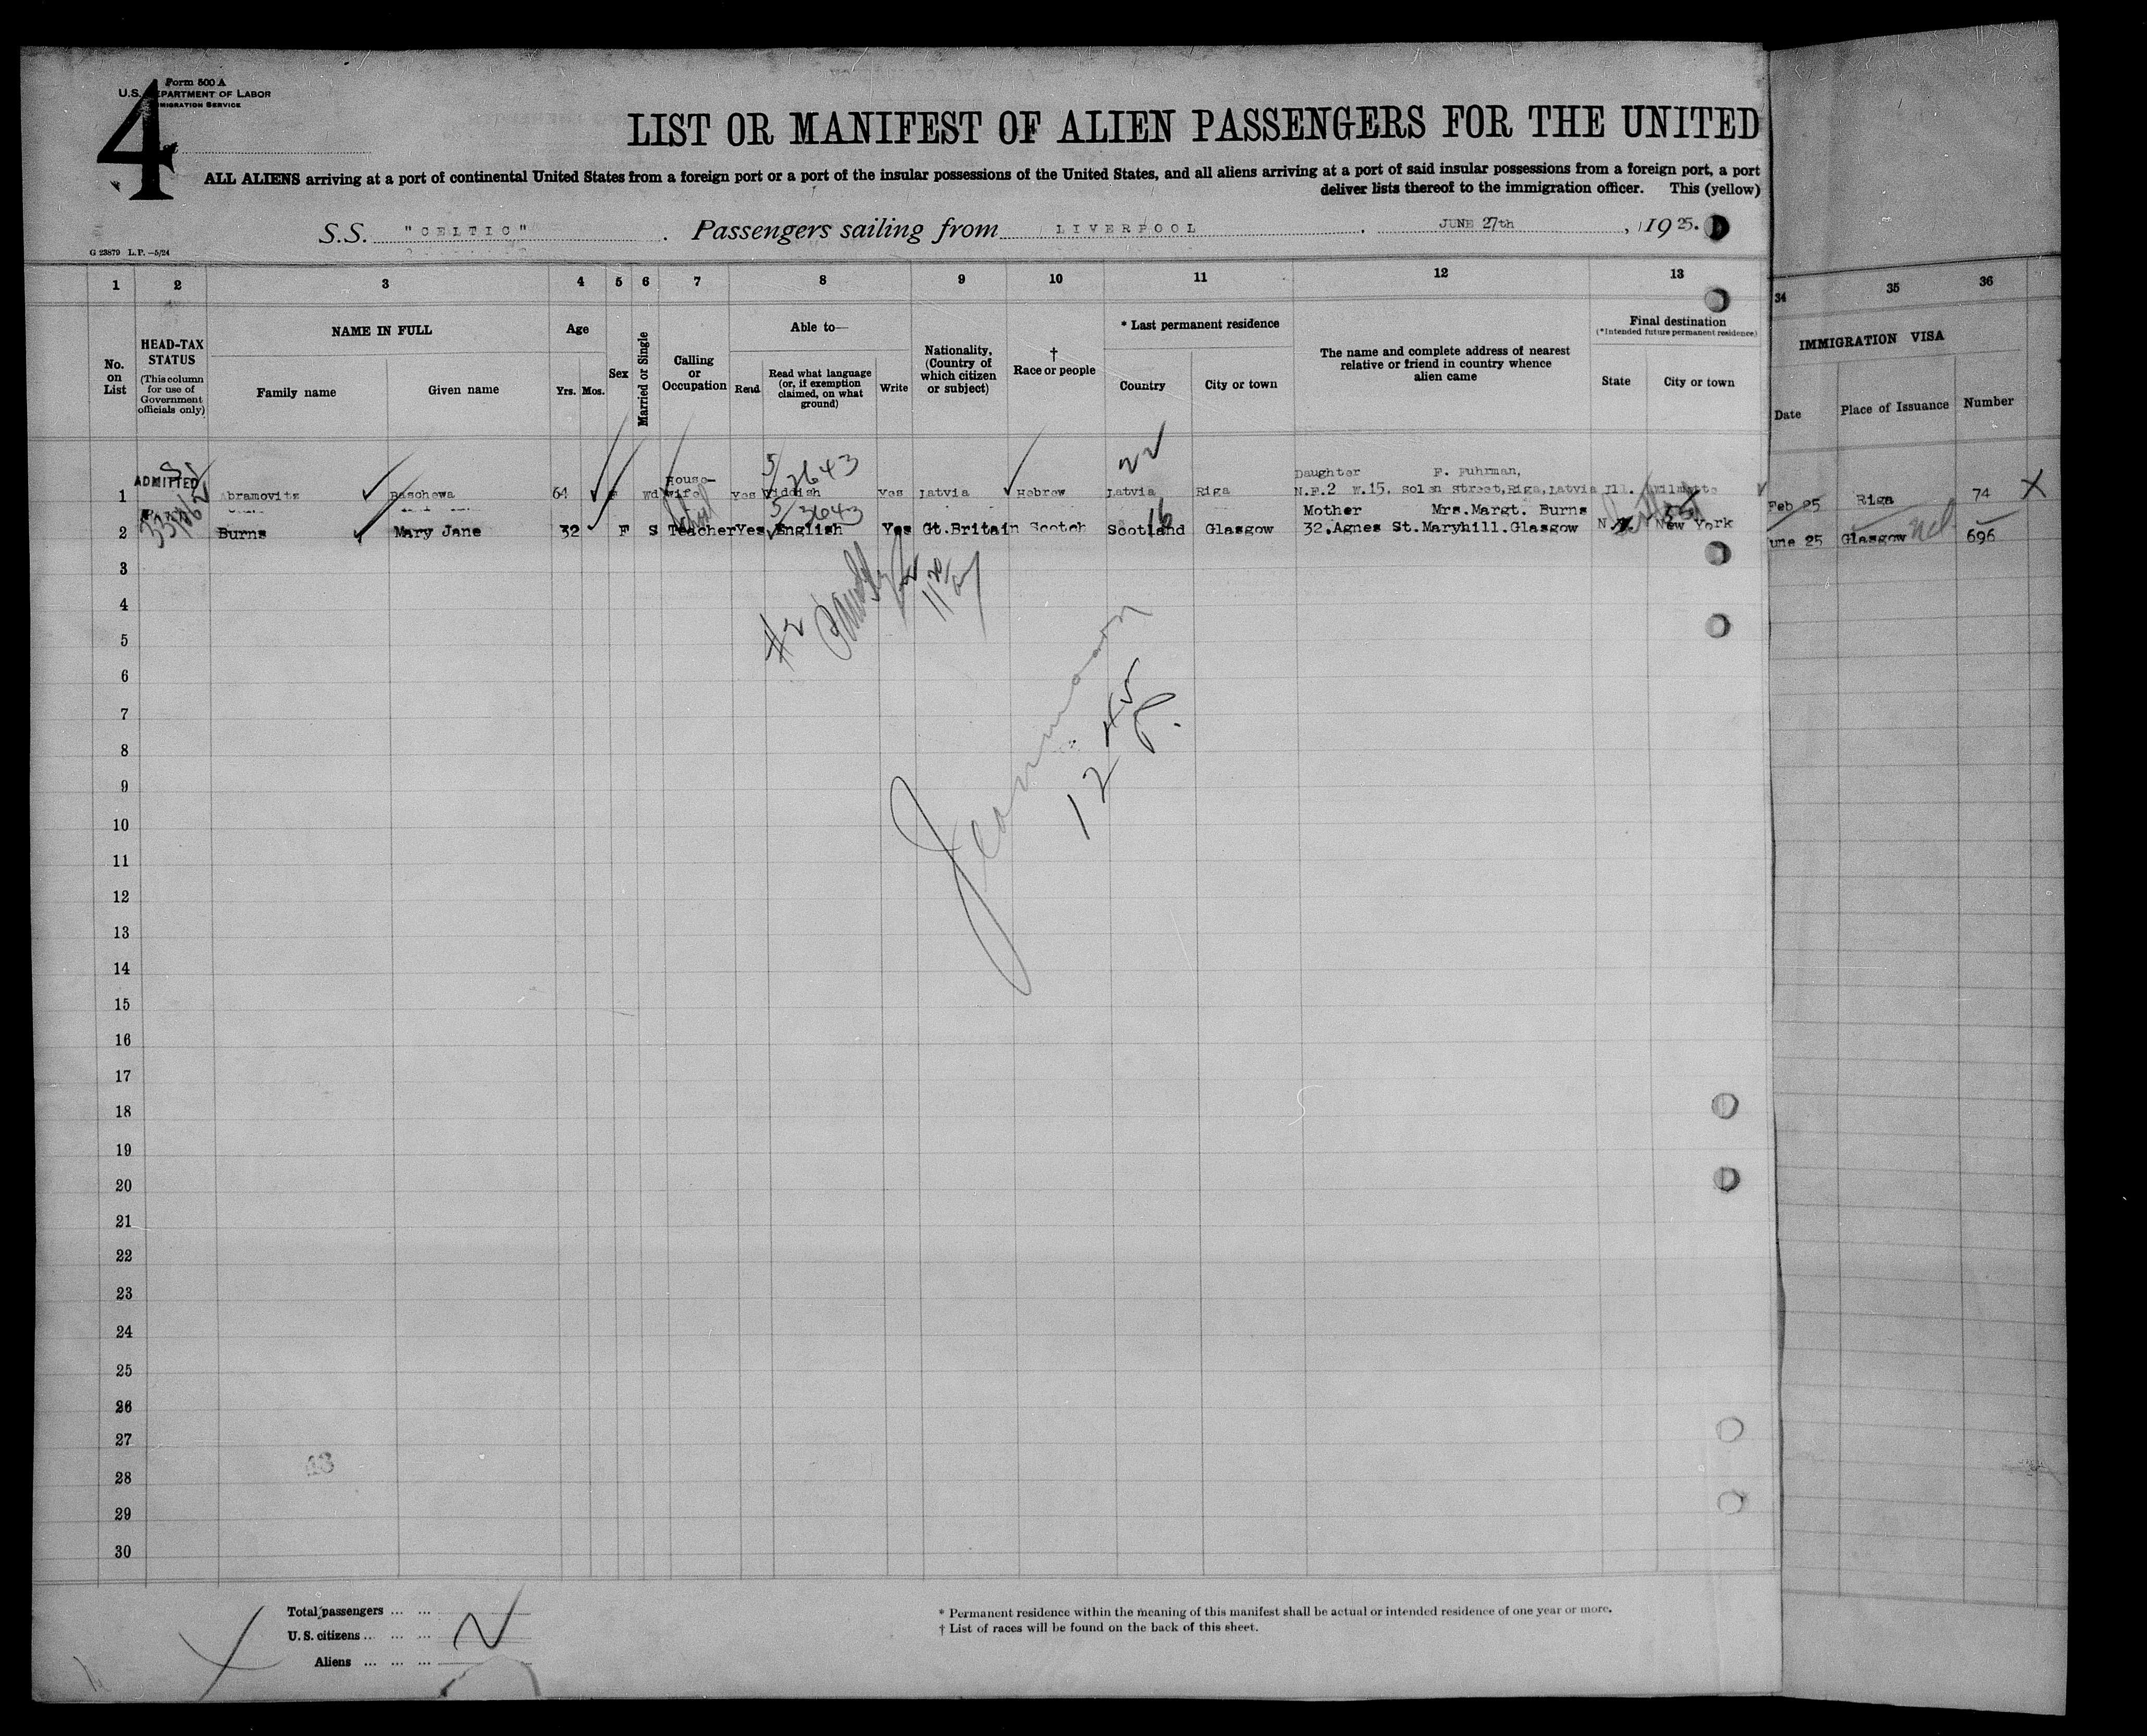 4
Form 500 A
U.S. DEPARTMENT OF LABOR
IMMIGRATION SERVICE
LIST OR MANIFEST OF ALIEN PASSENGERS FOR THE UNITED
ALL ALIENS arriving at a port of continental United States from a foreign port or a port of the insular possessions of the United States, and all aliens arriving at a port of said insular possessions from a foreign port, a port
deliver lists thereof to the immigration officer. This (yellow)
S.S. "CELTIC". Passengers sailing from LIVERPOOL. JUNE 27th, 1925.
G 23879 L.P.—5/24
1 2 3 4 5 6 7 8 9 10 11 12 13 34 35 36
No. on List
HEAD-TAX STATUS
(This column for use of Government officials only)
NAME IN FULL
Family name Given name
Age
Yrs. Mos.
Sex
Married or Single
Calling or Occupation
Able to—
Read
Read what language (or, if exemption claimed, on what ground)
Write
Nationality, (Country of which citizen or subject)
† Race or people
* Last permanent residence
Country City or town
The name and complete address of nearest relative or friend in country whence alien came
Final destination
(*Intended future permanent residence)
State City or town
IMMIGRATION VISA
Date Place of Issuance Number
ADMITTED
5/2643
22
Daughter F. Fuhrman,
1 Abramovitz Baschewa 64 F Wd House-wife Yes Yiddish Yes Latvia Hebrew Latvia Riga N.F.2 W.15. street, Riga, Latvia Ill. Wilmette Feb 25 Riga 74 X
5/3643
16
Mother Mrs.Margt. Burns
2 Burns Mary Jane 32 F S Teacher Yes English Yes Gt.Britain Scotch Scotland Glasgow 32.Agnes St.Maryhill.Glasgow N.Y. New York une 25 Glasgow 696
3
4
5
6
7
8
9
10
11
12
13
14
15
16
17
18
19
20
21
22
23
24
25
26
27
28
29
30
#2
12 45 P.
Total passengers ... ...
U.S. citizens ... ... ...
Aliens ... ... ...
* Permanent residence within the meaning of this manifest shall be actual or intended residence of one year or more.
† List of races will be found on the back of this sheet.